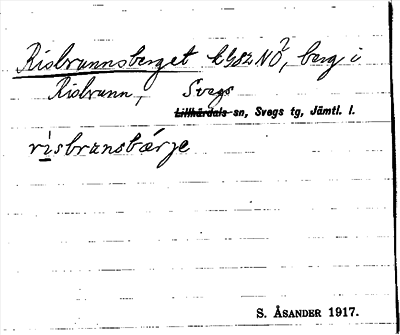 Risbrunnsberget k982 NÖ?, berg i
Risbrunn, Svegs
Lillhärdals sn, Svegs tg, Jämtl. l.
risbrunsbárje
S. ÅSANDER 1917.